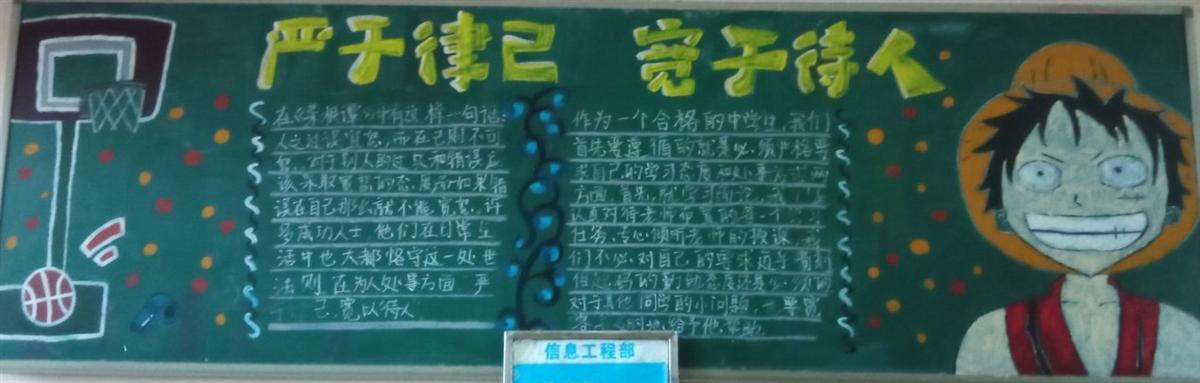 严于律己 宽于待人
在《菜根谭》中有这样一句话:
人之过误宜恕,而在己则不可
恕,对于别人的过失和错误应
该采取宽恕的态度,而如果错
误在自己那么就不能宽恕,许
多成功人士 他们在日常生
活中也大都恪守这一处世
法则,在为人处事方面 严
己,宽以待人
作为一个合格的中学生,我们
首先要遵循的就是必须严格要
求自己的学习态度和
方面,首先,就学习而论,我们
认真对待老师布置的每一个
任务,专心倾听老师的授课,我
们不必对自己的要求过于苛刻
但
对于其他同学的小问题,一要宽
容 给予他 帮助
信息工程部